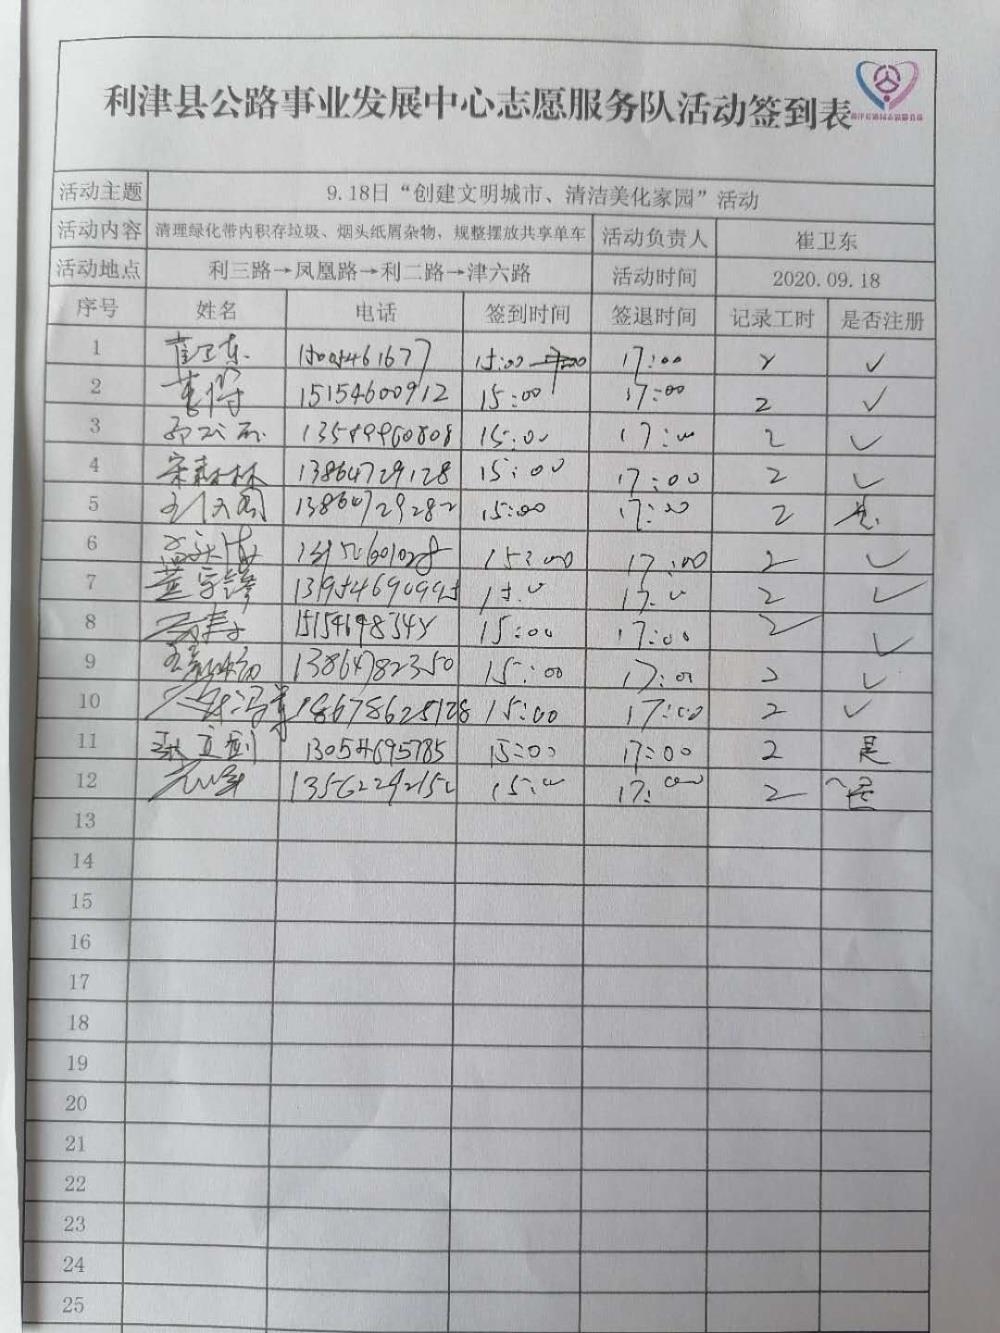 利津县公路事业发展中心志愿服务队活动签到表
活动主题 9.18日“创建文明城市、清洁美化家园”活动
活动内容 清理绿化带内积存垃圾、烟头纸屑杂物，规整摆放共享单车 活动负责人 崔卫东
活动地点 利三路→凤凰路→利二路→津六路 活动时间 2020.09.18
序号 姓名 电话 签到时间 签退时间 记录工时 是否注册
1 崔卫东 15:00 17:00 2 ✓
2 15154600912 15:00 17:00 2 ✓
3 13589960808 15:00 17:00 2 ✓
4 宋森林 13864729128 15:00 17:00 2 ✓
5 13864729282 15:00 17:00 2 是
6 15:00 17:00 2 ✓
7 15:00 17:00 2 ✓
8 15:00 17:00 2 ✓
9 13864782350 15:00 17:00 2 ✓
10 18678628128 15:00 17:00 2 ✓
11 张立剑 13054695785 15:00 17:00 2 是
12 15:00 17:00 2 是
13
14
15
16
17
18
19
20
21
22
23
24
25